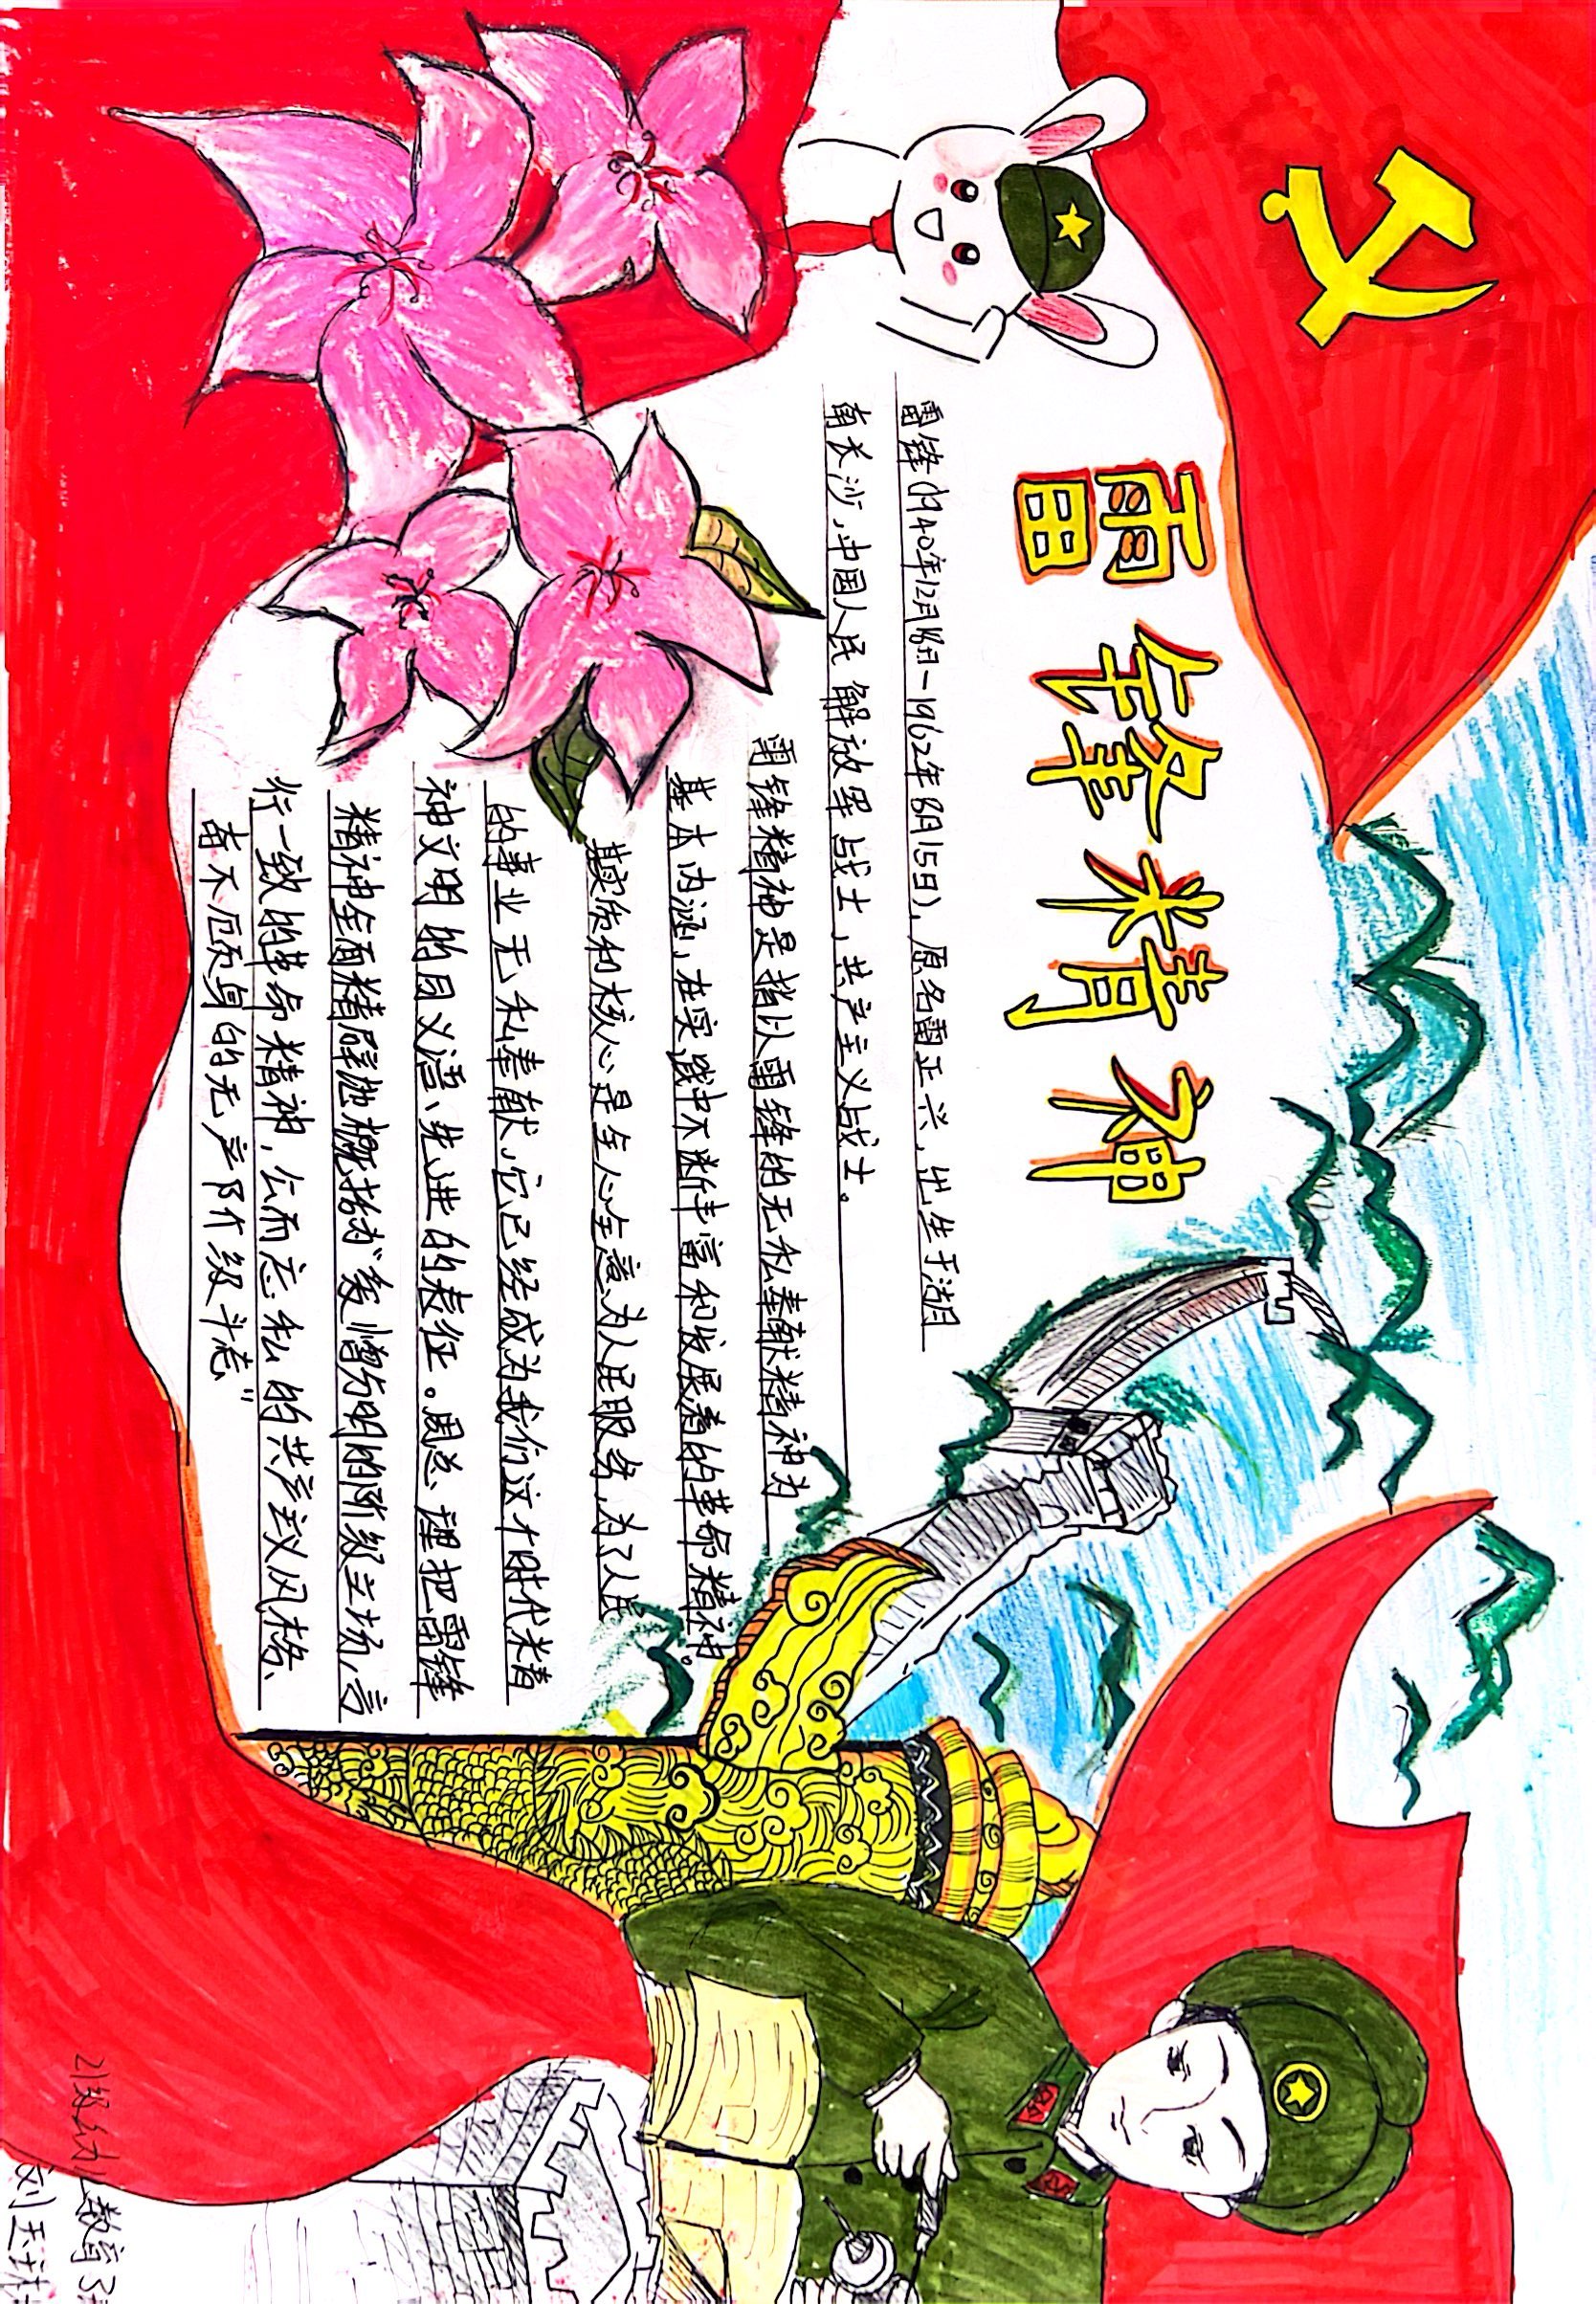 雷锋精神
雷锋(1940年12月18日-1962年8月15日),原名雷正兴,出生于湖
南长沙,中国人民解放军战士,共产主义战士。
雷锋精神是指以雷锋的无私奉献精神为
基本内涵,在实践中不断丰富和发展着的革命精神。
其实质和核心是全心全意为人民服务,为了人民
的事业无私奉献,它已经成为我们这个时代精
神文明的同义语、先进的表征。周总理把雷锋
精神全面精辟地概括为“爱憎分明的阶级立场、言
行一致的革命精神,公而忘私的共产主义风格、
奋不顾身的无产阶级斗志”
21级幼儿教育3
刘